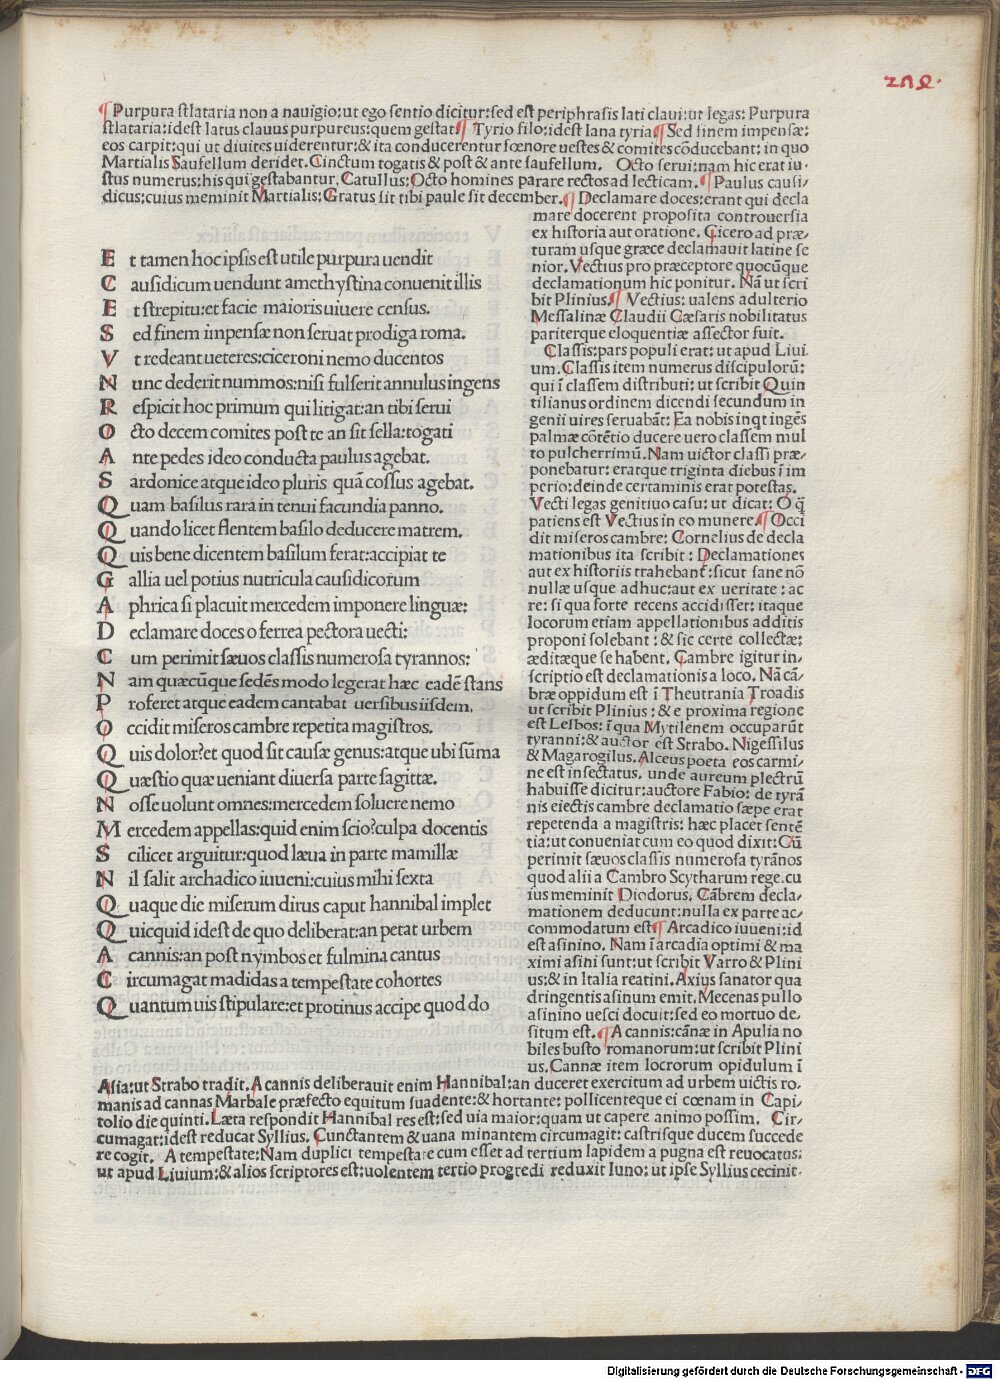 ¶Purpura stlataria non a nauigio:ut ego sentio dicitur:sed est periphrasis lati claui:ut legas: Purpura
stlataria:idest latus clauus purpureus:quem gestat¶ Tyrio filo:idest lana tyria¶Sed finem impensæ:
eos carpit:qui ut diuites uiderentur:& ita conducerentur fœnore uestes & comites cōducebant: in quo
Martialis Saufellum deridet. Cinctum togatis & post & ante saufellum. Octo serui:nam hic erat iu-
stus numerus:his qui gestabantur. Catullus: Octo homines parare rectos ad lecticam. ¶Paulus causi-
dicus:cuius meminit Martialis: Gratus sit tibi paule sit december. ¶Declamare doces:erant qui decla
mare docerent proposita controuersia
ex historia aut oratione. Cicero ad præ-
turam usque græce declamauit latine se
nior. Vectius pro præceptore quocūque
declamationum hic ponitur. Nā ut scri
bit Plinius.¶ Vectius: ualens adulterio
Messalinæ Claudii Cæsaris nobilitatus
pariterque eloquentiæ assector fuit.
Classis:pars populi erat: ut apud Liui
um. Classis item numerus discipulorū:
qui ī classem distributi: ut scribit Quin
tilianus ordinem dicendi secundum in
genii uires seruabāt: Ea nobis inqt ingēs
palmæ cōtētio ducere uero classem mul
to pulcherrimū. Nam uictor classi præ-
ponebatur: eratque triginta diebus ī im
perio:deinde certaminis erat potestas.
Vecti legas genitiuo casu: ut dicat: O q̄
patiens est Vectius in eo munere.¶Occi
dit miseros cambre: Cornelius de decla
mationibus ita scribit: Declamationes
aut ex historiis trahebant:sicut sane nō
nullæ usque adhuc:aut ex ueritate: ac
re: si qua forte recens accidisset: itaque
locorum etiam appellationibus additis
proponi solebant: & sic certe collectæ:
æditæque se habent. Cambre igitur in-
scriptio est declamationis a loco. Nā cā-
bræ oppidum est ī Theutrania Troadis
ut scribit Plinius: & e proxima regione
est Lesbos: ī qua Mytilenem occuparūt
tyranni:& auctor est Strabo. Nigessilus
& Magarogilus. Alceus poeta eos carmi-
ne est insectatus. unde aureum plectrū
habuisse dicitur:auctore Fabio: de tyrā
nis eiectis cambre declamatio sæpe erat
repetenda a magistris: hæc placet sentē
tia:ut conueniat cum eo quod dixit: Cū
perimit sæuos classis numerosa tyrānos
quod alii a Cambro Scytharum rege. cu
ius meminit Diodorus. Cābrem decla-
mationem deducunt:nulla ex parte ac-
commodatum est¶ Arcadico iuueni:id
est asinino. Nam ī arcadia optimi & ma
ximi asini sunt:ut scribit Varro & Plini
us:& in Italia reatini. Axius sanator qua
dringentis asinum emit. Mecenas pullo
asinino uesci docuit:sed eo mortuo de-
situm est. ¶A cannis: cānæ in Apulia no
biles busto romanorum:ut scribit Plini
us. Cannæ item locrorum opidulum ī
E t tamen hoc ipsis est utile purpura uendit
C ausidicum uendunt amethystina conuenit illis
E t strepitu:et facie maioris uiuere census.
S ed finem impensæ non seruat prodiga roma.
V t redeant ueteres:ciceroni nemo ducentos
N unc dederit nummos:nisi fulserit annulus ingens
R espicit hoc primum qui litigat:an tibi serui
O cto decem comites post te an sit sella:togati
A nte pedes ideo conducta paulus agebat.
S ardonice atque ideo pluris quā cossus agebat.
Q uam basilus rara in tenui facundia panno.
Q uando licet flentem basilo deducere matrem.
Q uis bene dicentem basilum ferat:accipiat te
G allia uel potius nutricula causidicorum
A phrica si placuit mercedem imponere linguæ:
D eclamare doces o ferrea pectora uecti:
C um perimit sæuos classis numerosa tyrannos:
N am quæcūque sedēs modo legerat hæc eadē stans
P roferet atque eadem cantabat uersibus iisdem.
O ccidit miseros cambre repetita magistros.
Q uis dolor?et quod sit causæ genus:atque ubi sūma
Q uæstio quæ ueniant diuersa parte sagittæ.
N osse uolunt omnes:mercedem soluere nemo
M ercedem appellas:quid enim scio?culpa docentis
S cilicet arguitur:quod læua in parte mamillæ
N il salit archadico iuueni:cuius mihi sexta
Q uaque die miserum dirus caput hannibal implet
Q uicquid idest de quo deliberat:an petat urbem
A cannis:an post nymbos et fulmina cantus
C ircumagat madidas a tempestate cohortes
Q uantum uis stipulare:et protinus accipe quod do
Asia:ut Strabo tradit. A cannis deliberauit enim Hannibal:an duceret exercitum ad urbem uictis ro-
manis ad cannas Marbale præfecto equitum suadente:& hortante: pollicenteque ei cœnam in Capi-
tolio die quinti. Læta respondit Hannibal res est:sed uia maior:quam ut capere animo possim. Cir-
cumagat:idest reducat Syllius. Cunctantem & uana minantem circumagit: castrisque ducem succede
re cogit. A tempestate:Nam duplici tempestate cum esset ad tertium lapidem a pugna est reuocatus:
ut apud Liuium:& alios scriptores est:uolentem tertio progredi reduxit Iuno: ut ipse Syllius cecinit.
Digitalisierung gefördert durch die Deutsche Forschungsgemeinschaft - DFG